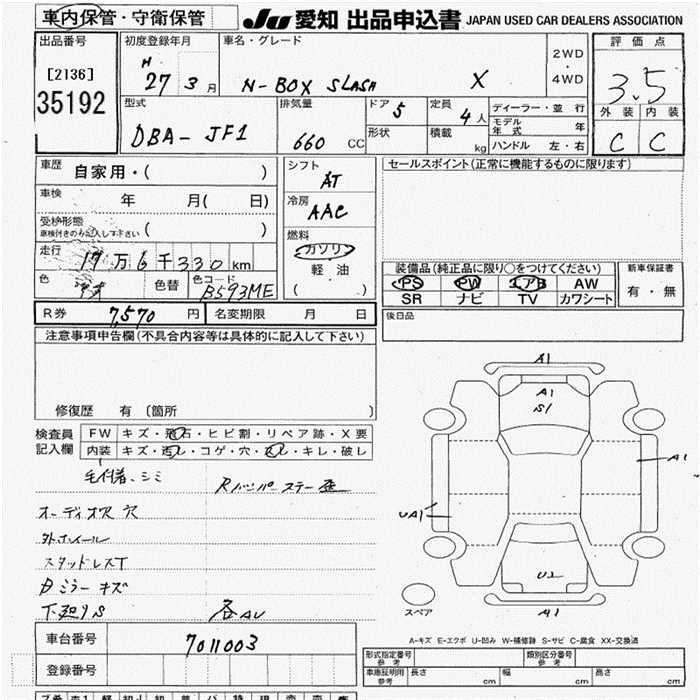 車内保管・守衛保管 JU 愛知 出品申込書 JAPAN USED CAR DEALERS ASSOCIATION
出品番号 初度登録年月 車名・グレード 2WD・4WD 評価点
[2136] H 27 3月 N-BOX SLASH X 3.5
35192
外装 内装
C C
型式 排気量 ドア 5 定員 4人 ディーラー・並行
DBA-JF1 660 CC 形状 積載 kg モデル年式 年
ハンドル 左・右
車歴 自家用・( ) シフト AT セールスポイント(正常に機能するものに限ります)
車検 年 月( 日) 冷房 AAC
受検形態 ( )
車検付きのみ記入して下さい
燃料 ガソリン
軽油
( )
走行 17万6千330km
色 色替 色コード B593ME
装備品(純正品に限り○をつけてください) 新車保証書
PS PW エアB AW 有・無
SR ナビ TV カワシート
R券 7,570円 名変期限 月 日 後日品
注意事項申告欄(不具合内容等は具体的に記入して下さい)
修復歴 有 〔箇所 〕
検査員記入欄 FW キズ・飛石・ヒビ割・リペア跡・X要
内装 キズ・汚レ・コゲ・穴・スレ・キレ・破レ
毛付着、シミ Rバンパーステー歪
オーディオ沢 穴
外ホイール
スタッドレスT
Dミラーキズ
下廻りS 各AU
A1
A1
S1
A1
UA1
U2
A1
スペア
A-キズ E-エクボ U-凹み W-補修跡 S-サビ C-腐食 XX-交換済
車台番号 7011003
登録番号
形式指定番号 参考 類別区分番号 参考
車庫証明用 参考 長さ cm 幅 cm 高さ cm